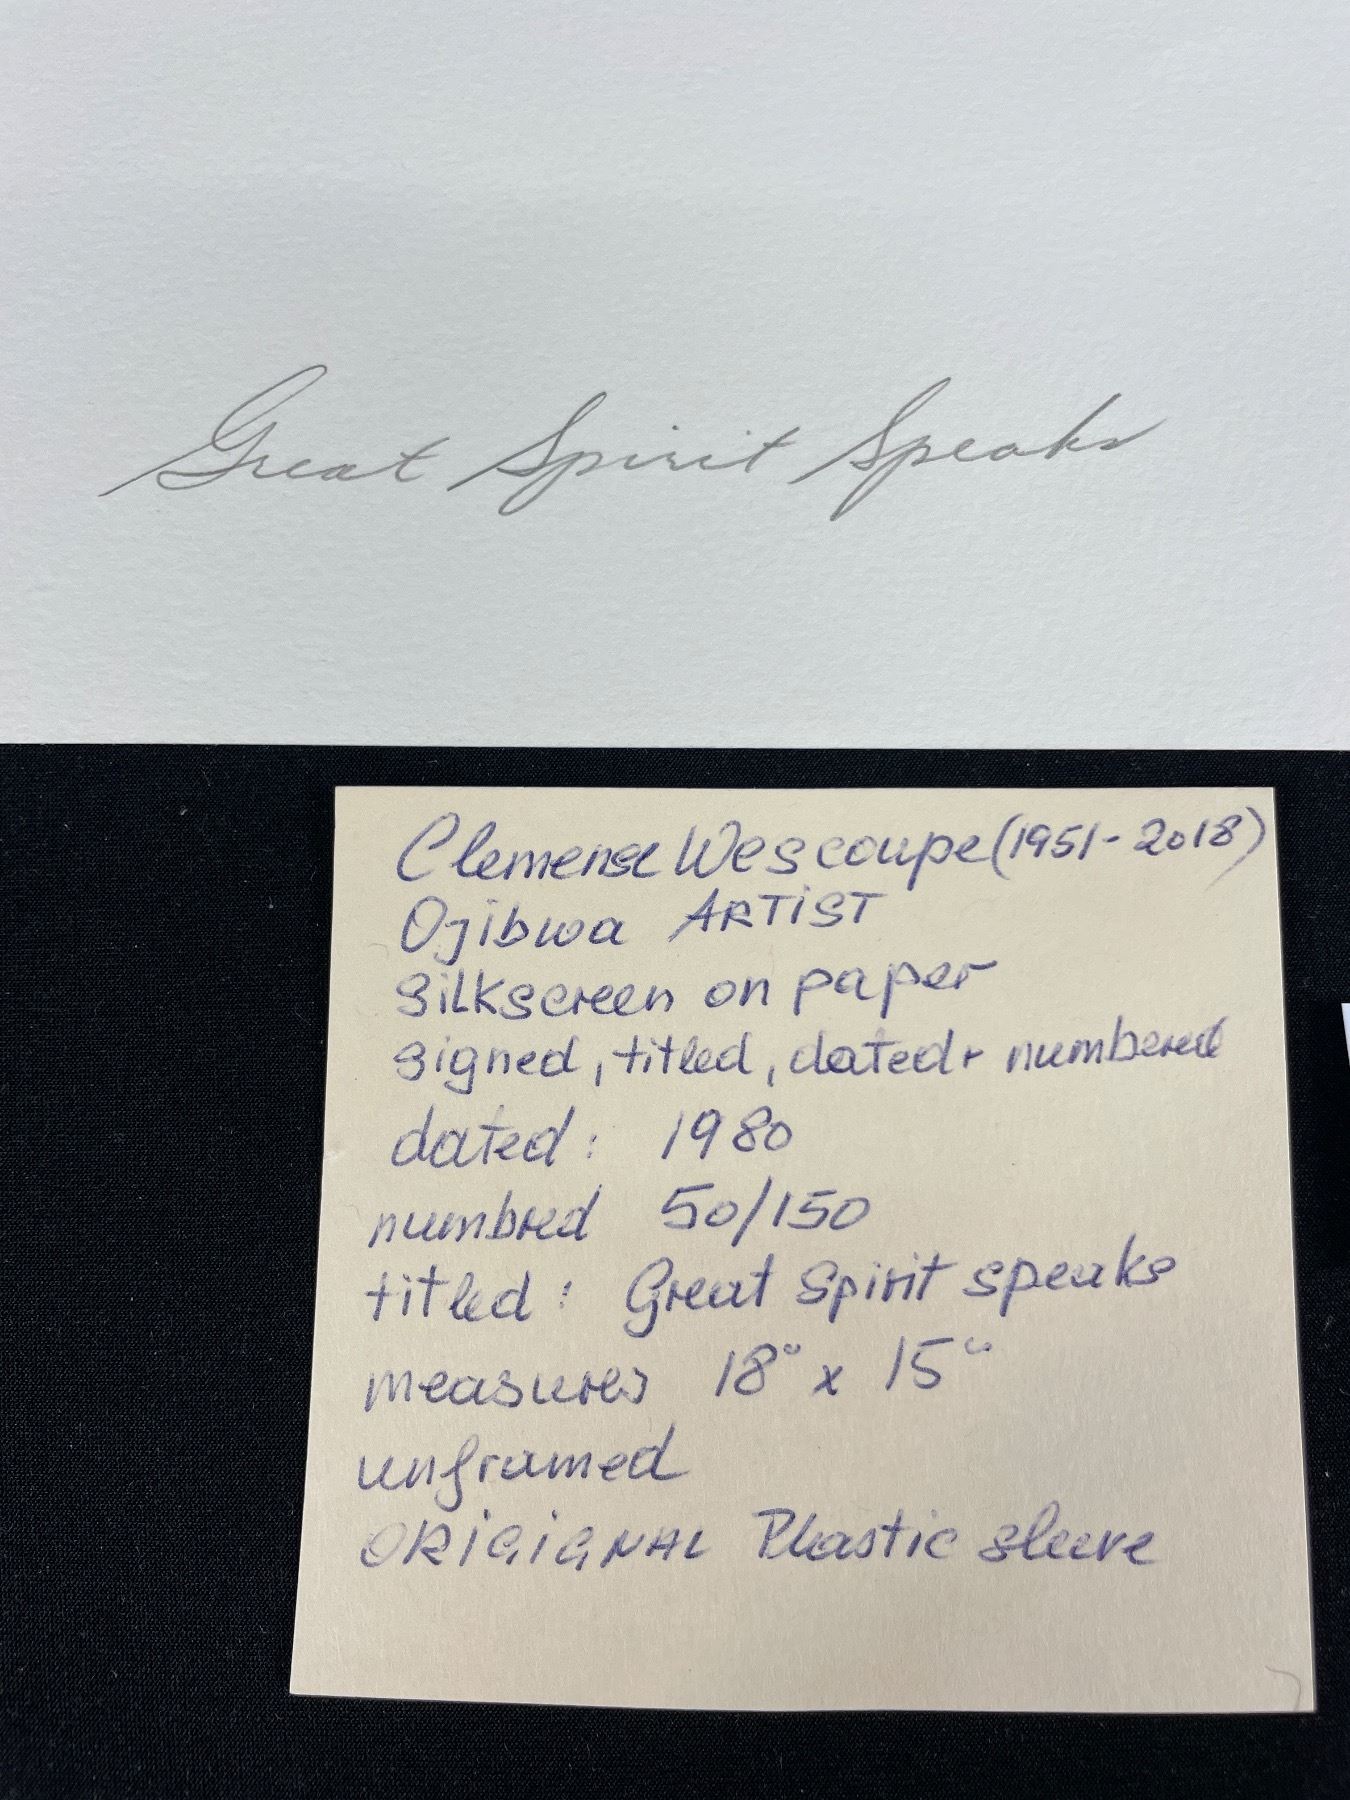 Great Spirit Speaks
Clemense Wescoupe (1951-2018)
Ojibwa ARTiST
silkscreen on paper
signed, titled, dated + numbered
dated: 1980
numbred 50/150
titled: Great Spirit speaks
measures 18" x 15"
unframed
ORIGIGNAL Plastic sleeve